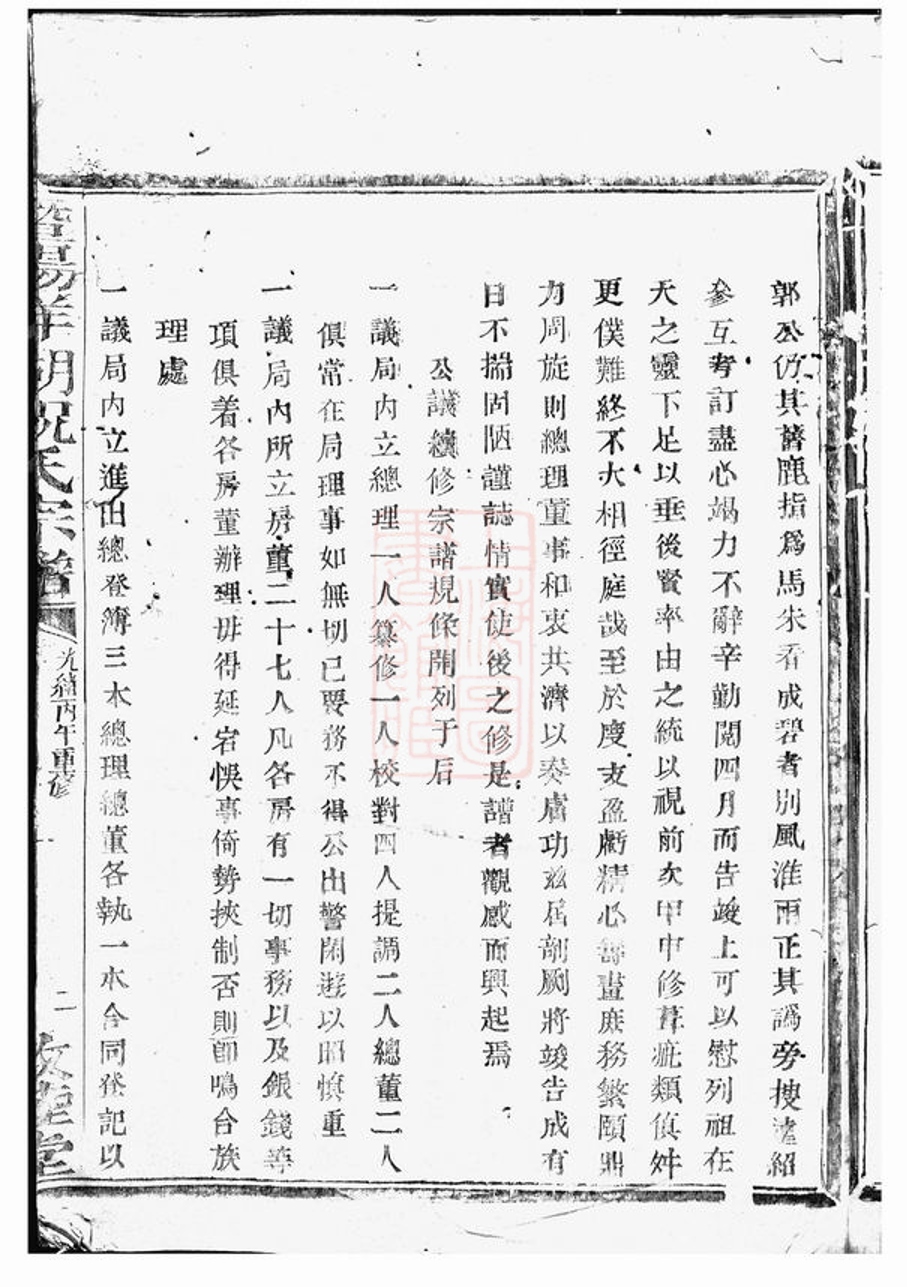 郭公仍其舊鹿指爲馬朱看成碧者別風淮雨正其譌旁搜遠紹
參互考訂盡心竭力不辭辛勤閱四月而告竣上可以慰列祖在
天之靈下足以垂後賢率由之統以視前次甲申修葺疵類偵舛
更僕難終不大相徑庭哉至於度支盈虧精心籌畫庶務繁頤鼎
力周旋則總理董事和衷共濟以奏膚功茲屆剞劂將竣告成有
日不揣固陋謹誌情實使後之修是譜者觀感而興起焉
公議續修宗譜規條開列于后
一議局内立總理一人纂修一人校對四人提調二人總董二人
俱常在局理事如無切已要務不得公出警閑遊以昭慎重
一議局内所立房董二十七人凡各房有一切事務以及銀錢等
項俱着各房董辦理毋得延宕悞事倚勢挾制否則卽鳴合族
理處
一議局内立進出總登簿三本總理總董各執一本合同登記以
暨陽羊湖祝氏宗譜
光緒丙午重修
二